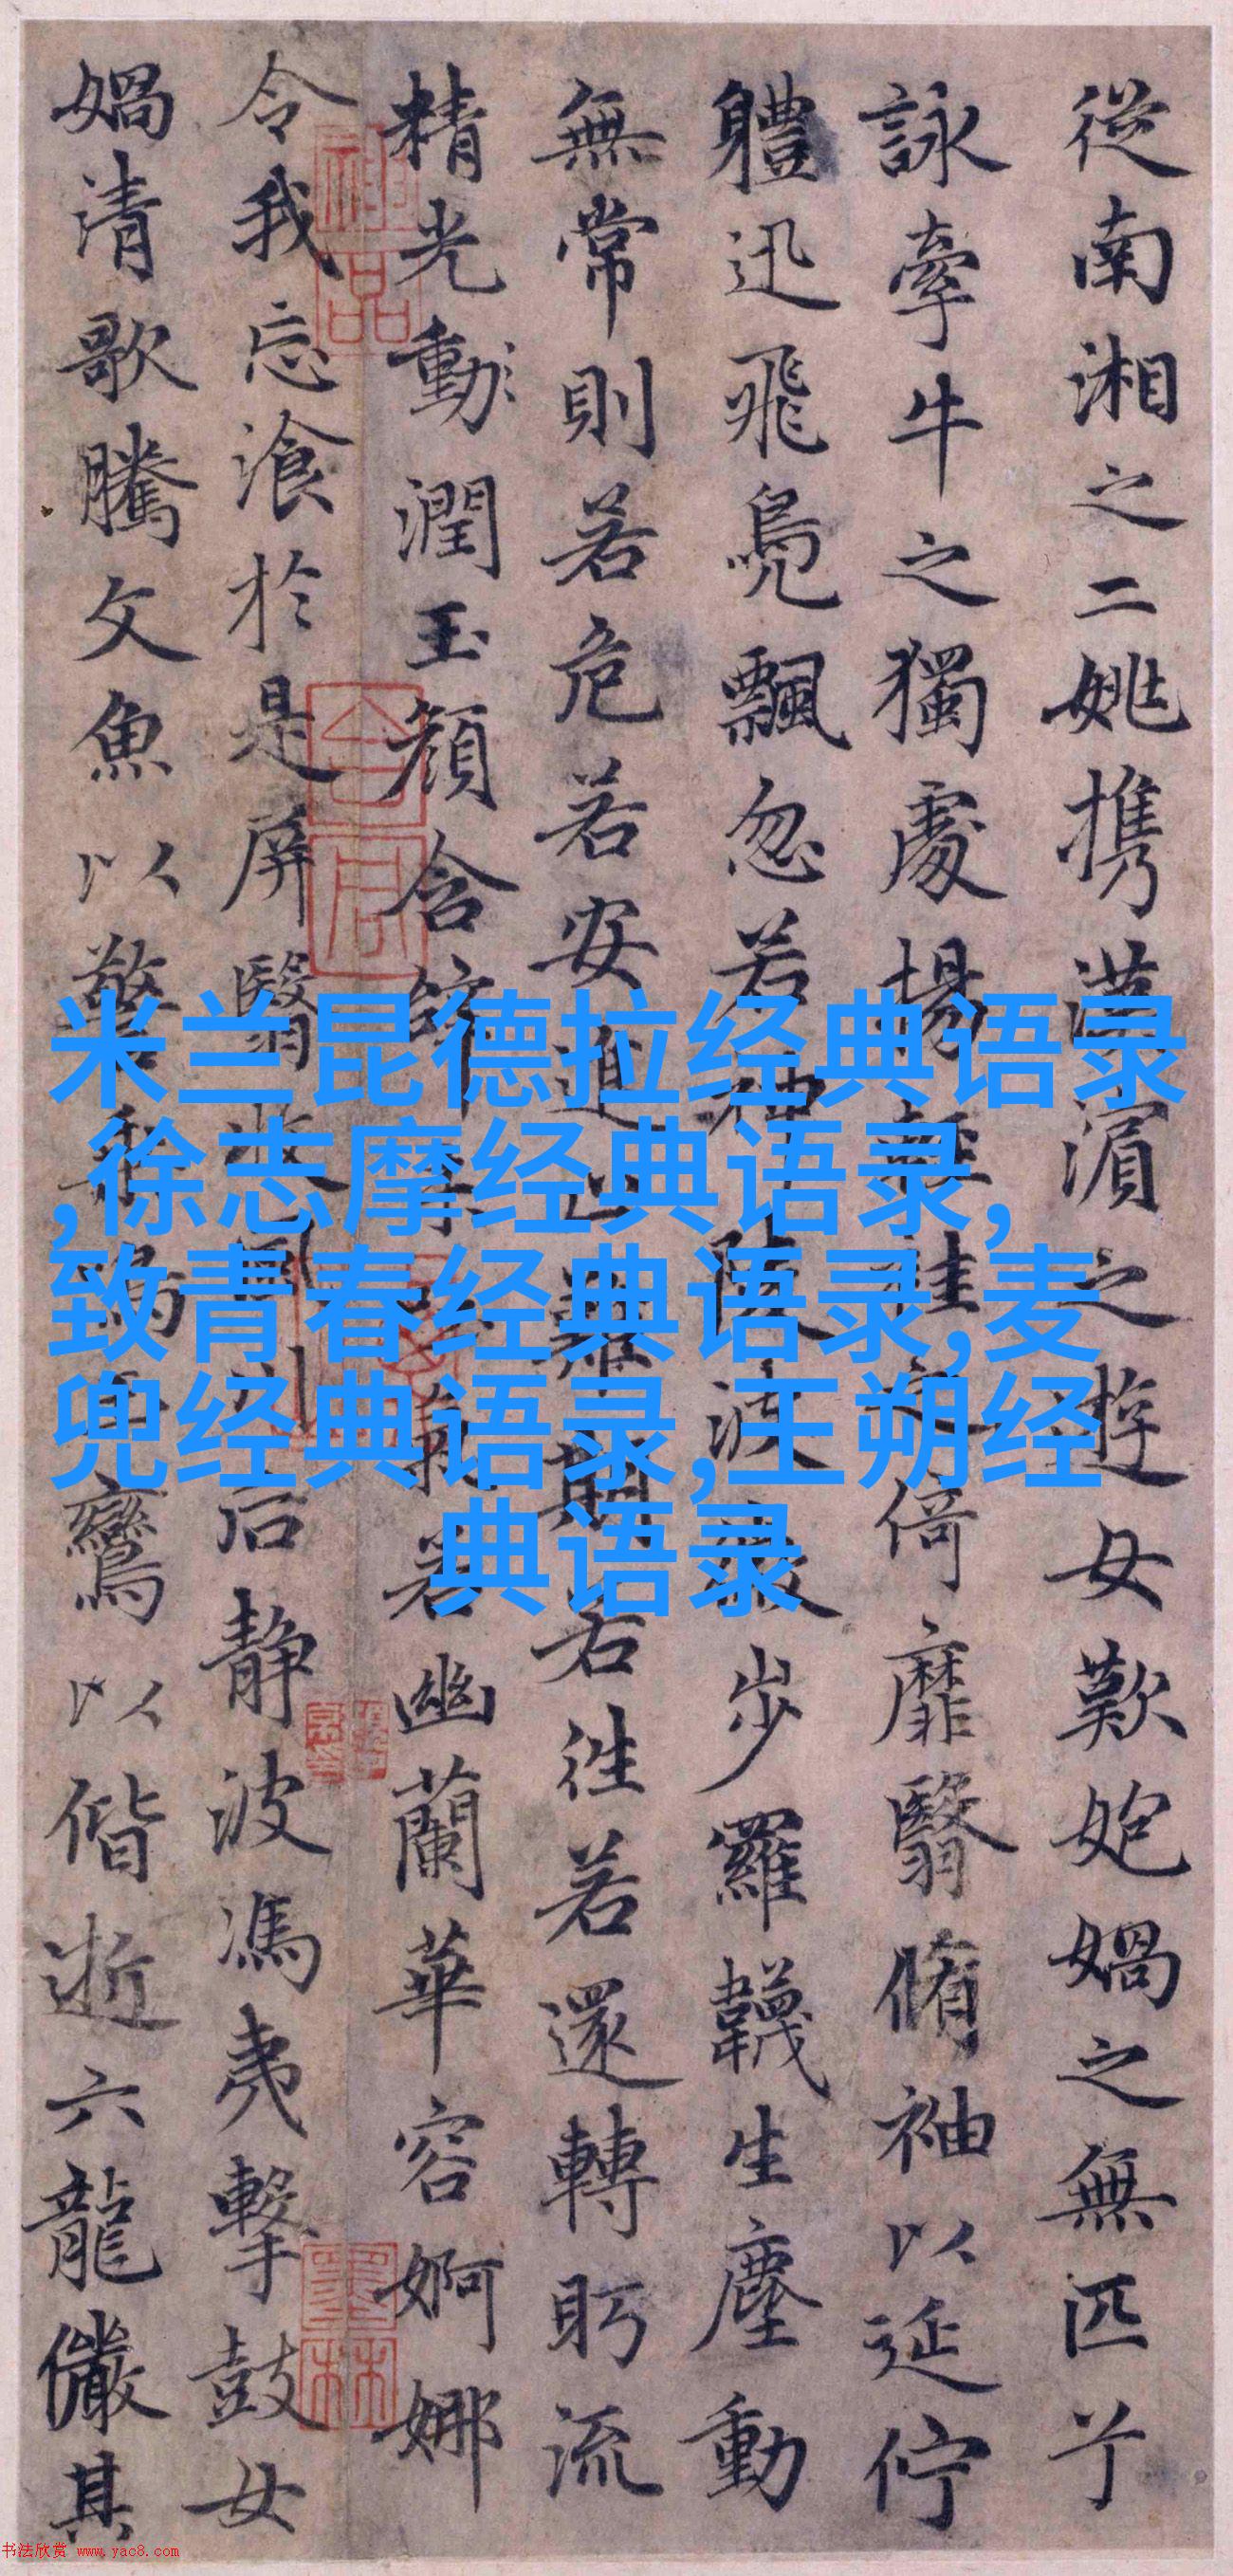 從南湘之二姚携漢濱之遊女歎媧之無匹兮
詠牽牛之獨處揚輕袿之倚靡翳脩袖以延佇
軆迅飛鳧飄忽若神陵波微步羅韈生塵動
無常則若危若安進止難期若往若還轉眄流
精光動潤玉顏含辭未吐氣若幽蘭華容婀娜
令我忘湌於是屏翳收風川后靜波馮夷擊鼓女
媧清歌騰文魚以警乘鳴玉鸞以偕逝六龍儼其
米兰昆德拉经典语录
,徐志摩经典语录,
致青春经典语录,麦
兜经典语录,王朔经
典语录
书法欣赏 www.yac8.com